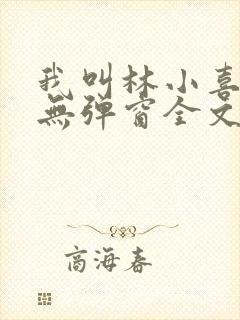 我叫林小喜
無弹窗全文
商海春